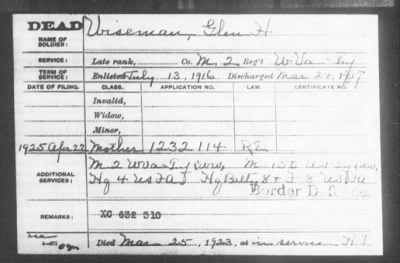 DEAD
NAME OF SOLDIER: Wiseman, Glen H.
SERVICE: Late rank, Co. M, 2 Reg't W Va Inf
TERM OF SERVICE: Enlisted July 13, 1916 Discharged Mar 24, 1919
DATE OF FILING. CLASS. APPLICATION NO. LAW. CERTIFICATE NO.
Invalid,
Widow,
Minor,
1925 Apr 22 Mother 1232 114
ADDITIONAL SERVICES: M 2 W Va Inf M 150 US Inf
Hq 4 US F A
Border D.
REMARKS: XC 632 310
Died Mar 25, 1923, at in service